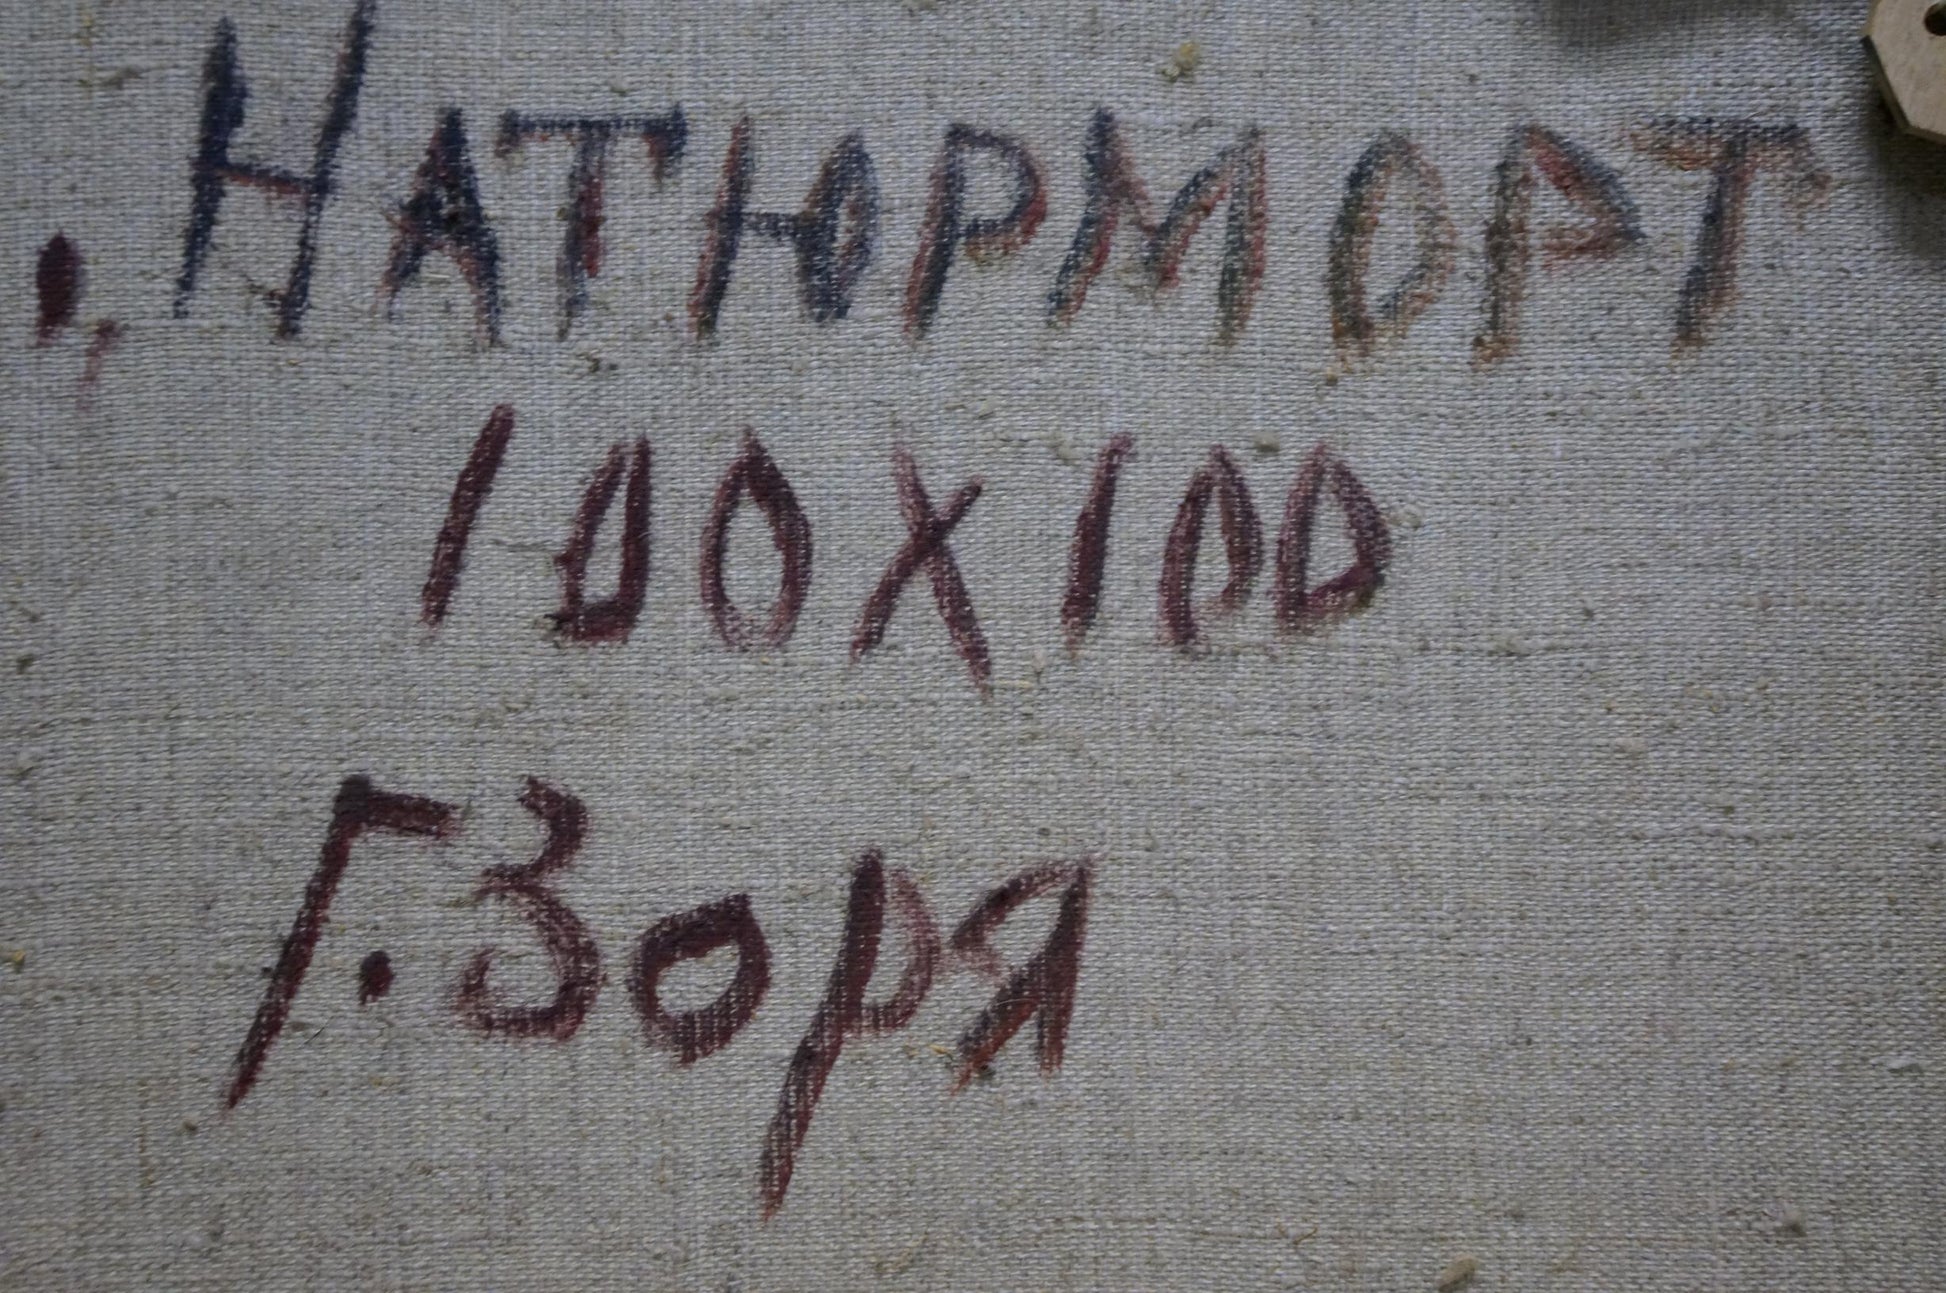 „Натюрморт
100х100
Г. Зоря